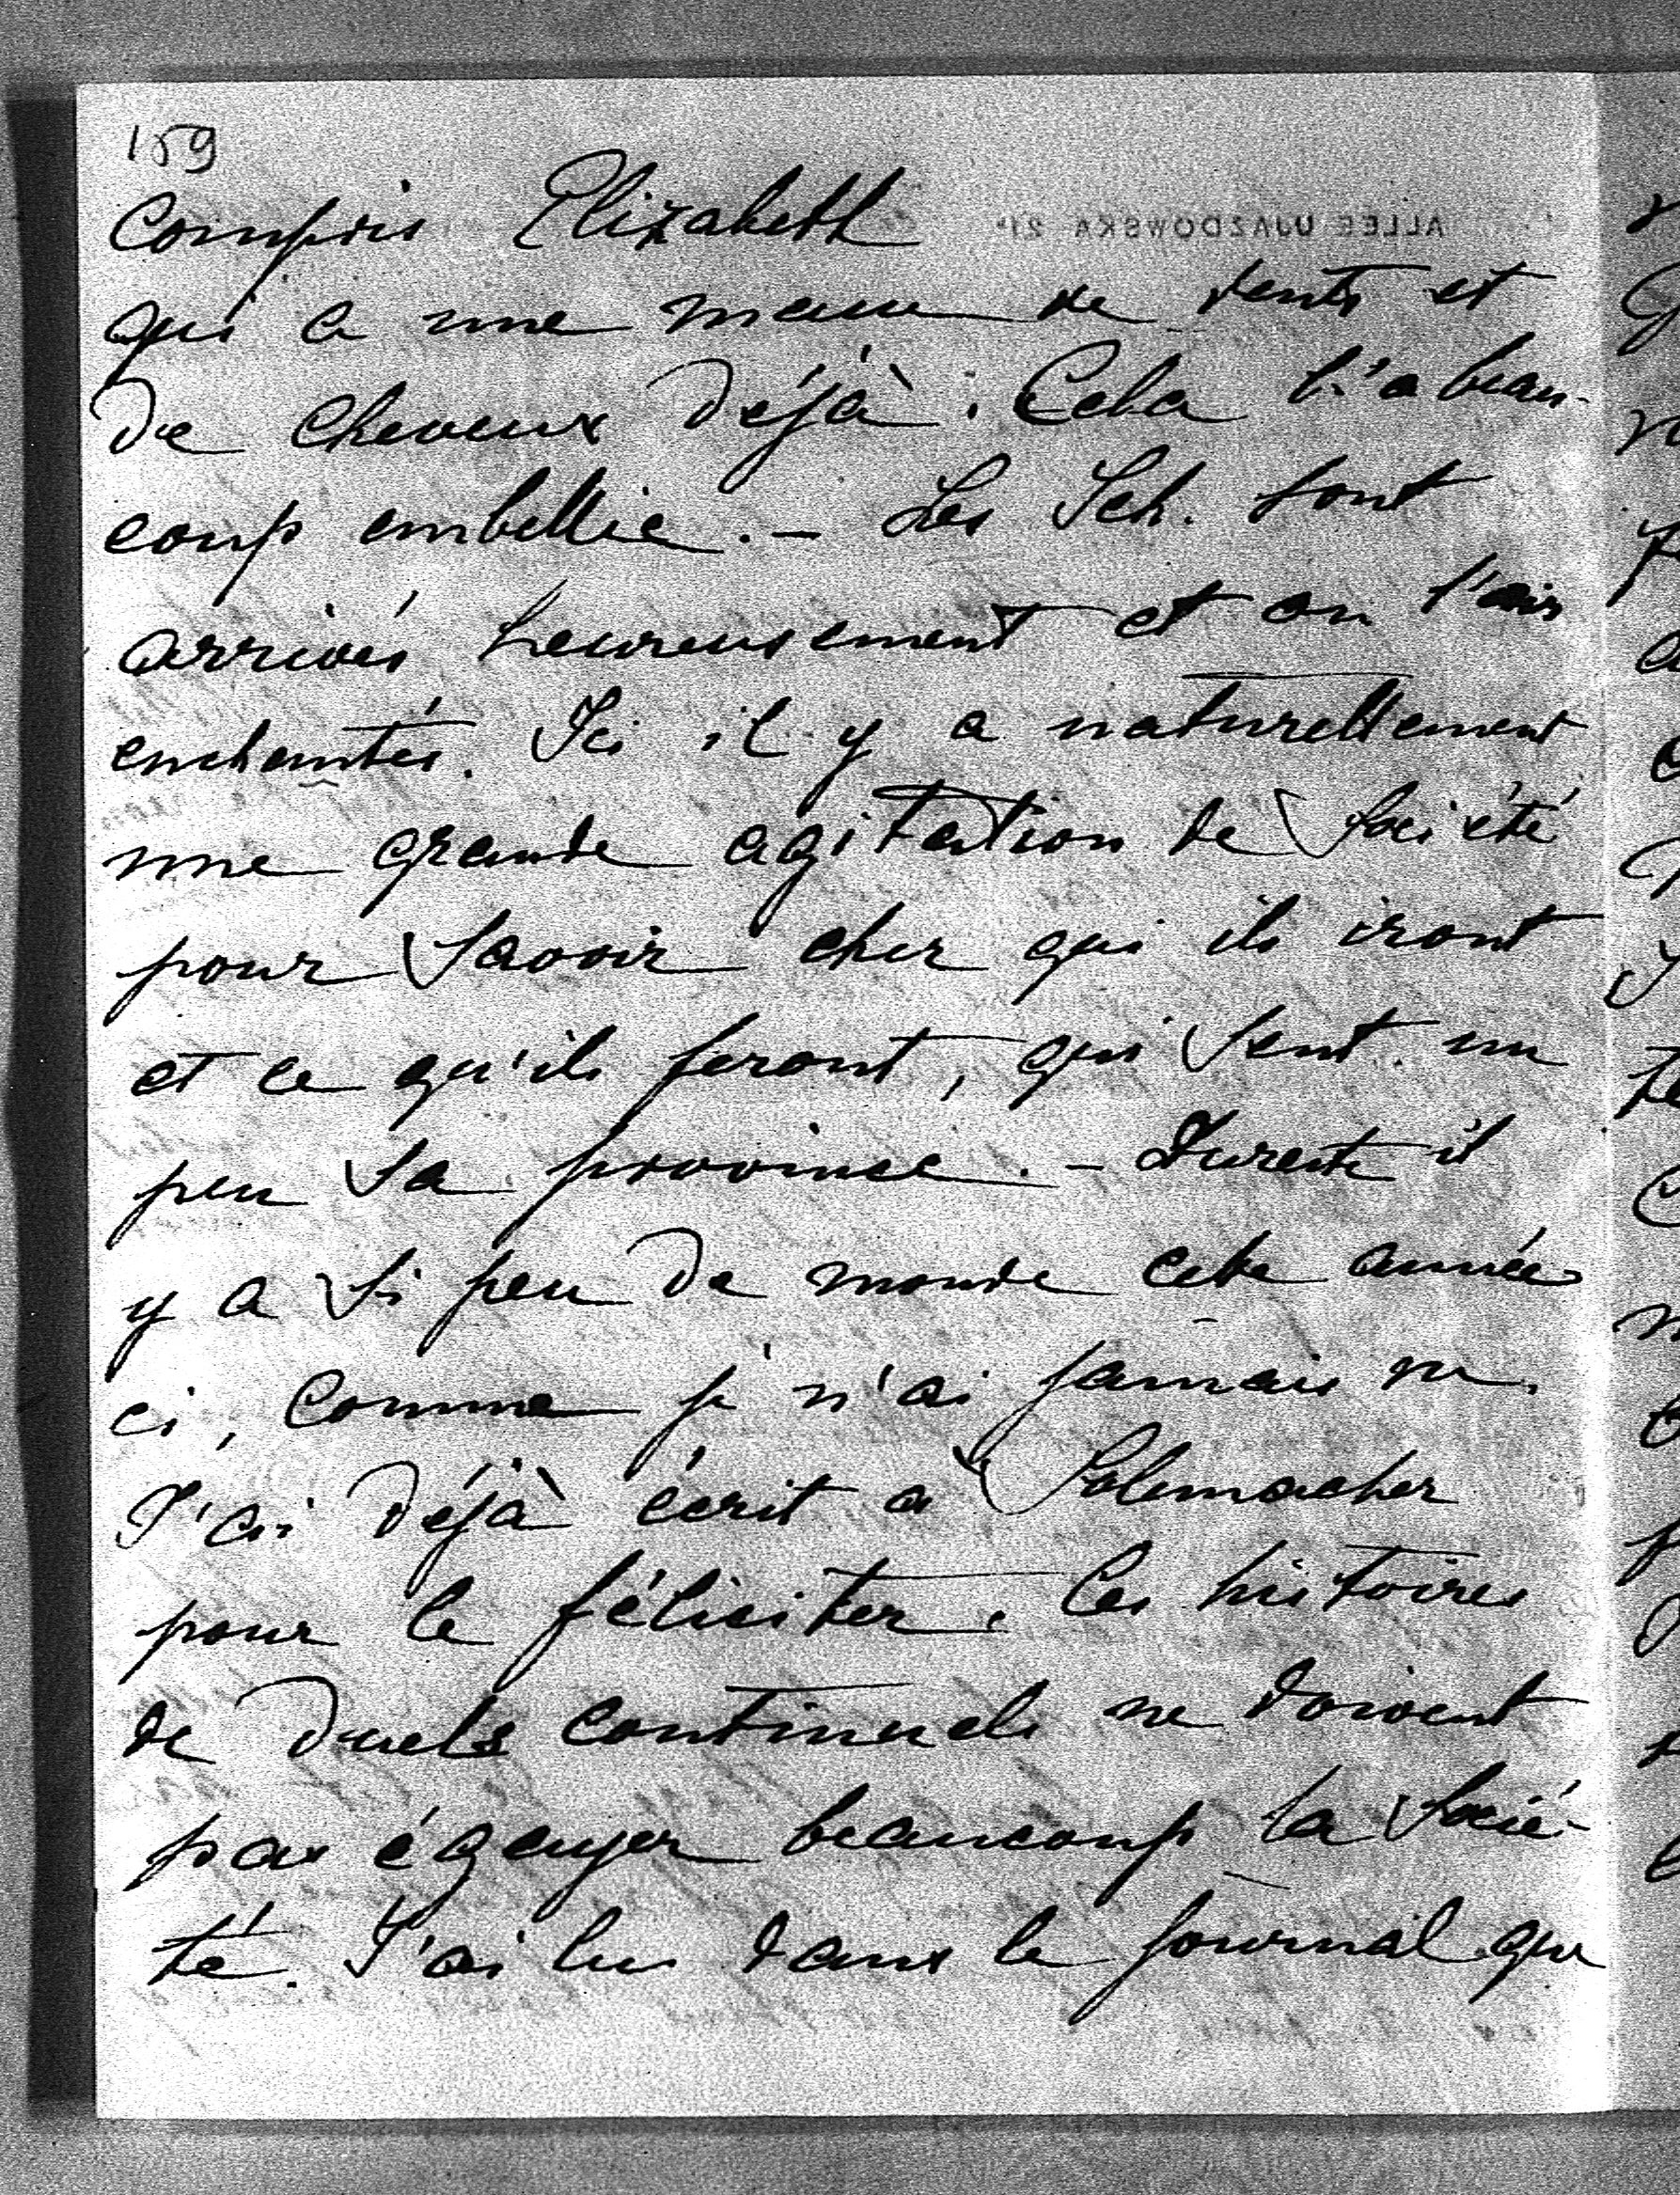 159
Compris Elizabeth
ALLÉE UJAZDOWSKA 21
qui a une masse de dents et
de cheveux déjà. Cela l'a beau-
coup embellie. – Les Sch. sont
arrivés heureusement et on l'air
enchantés. Ici il y a naturellement
une grande agitation de Société
pour savoir chez qui ils iront
et ce qu'ils feront, qui sent un
peu sa province. – Dureste il
y a si peu de monde cette année
ci, comme je n'ai jamais vu.
J'ai déjà écrit à Solemacher
pour le féliciter. Ces histoires
de duels continuels ne doivent
pas égayer beaucoup la Socié-
té. J'ai lu dans le journal que